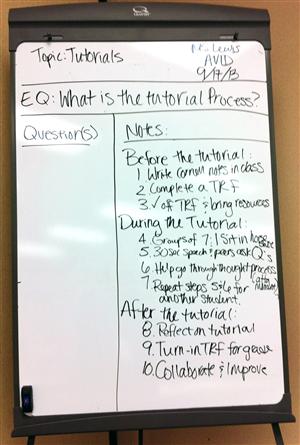 Topic: Tutorials
Lewis
AVID
9/17/13
EQ: What is the tutorial Process?
Question(s)
Notes:
Before the tutorial:
1 Write cornell notes in class
2 Complete a TRF
3. ✓ off TRF & bring resources
During the Tutorial:
4. Groups of 7; 1 sit in
5. 30 sec speech & peers ask Q's
6. Help go through thought process
7. Repeat steps 5 & 6 for
another student.
After the tutorial:
8. Reflect on tutorial
9. Turn-in TRF for grade
10. Collaborate & Improve